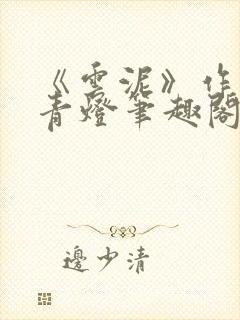 《雲泥》作
青燈筆趣閣
邊少清